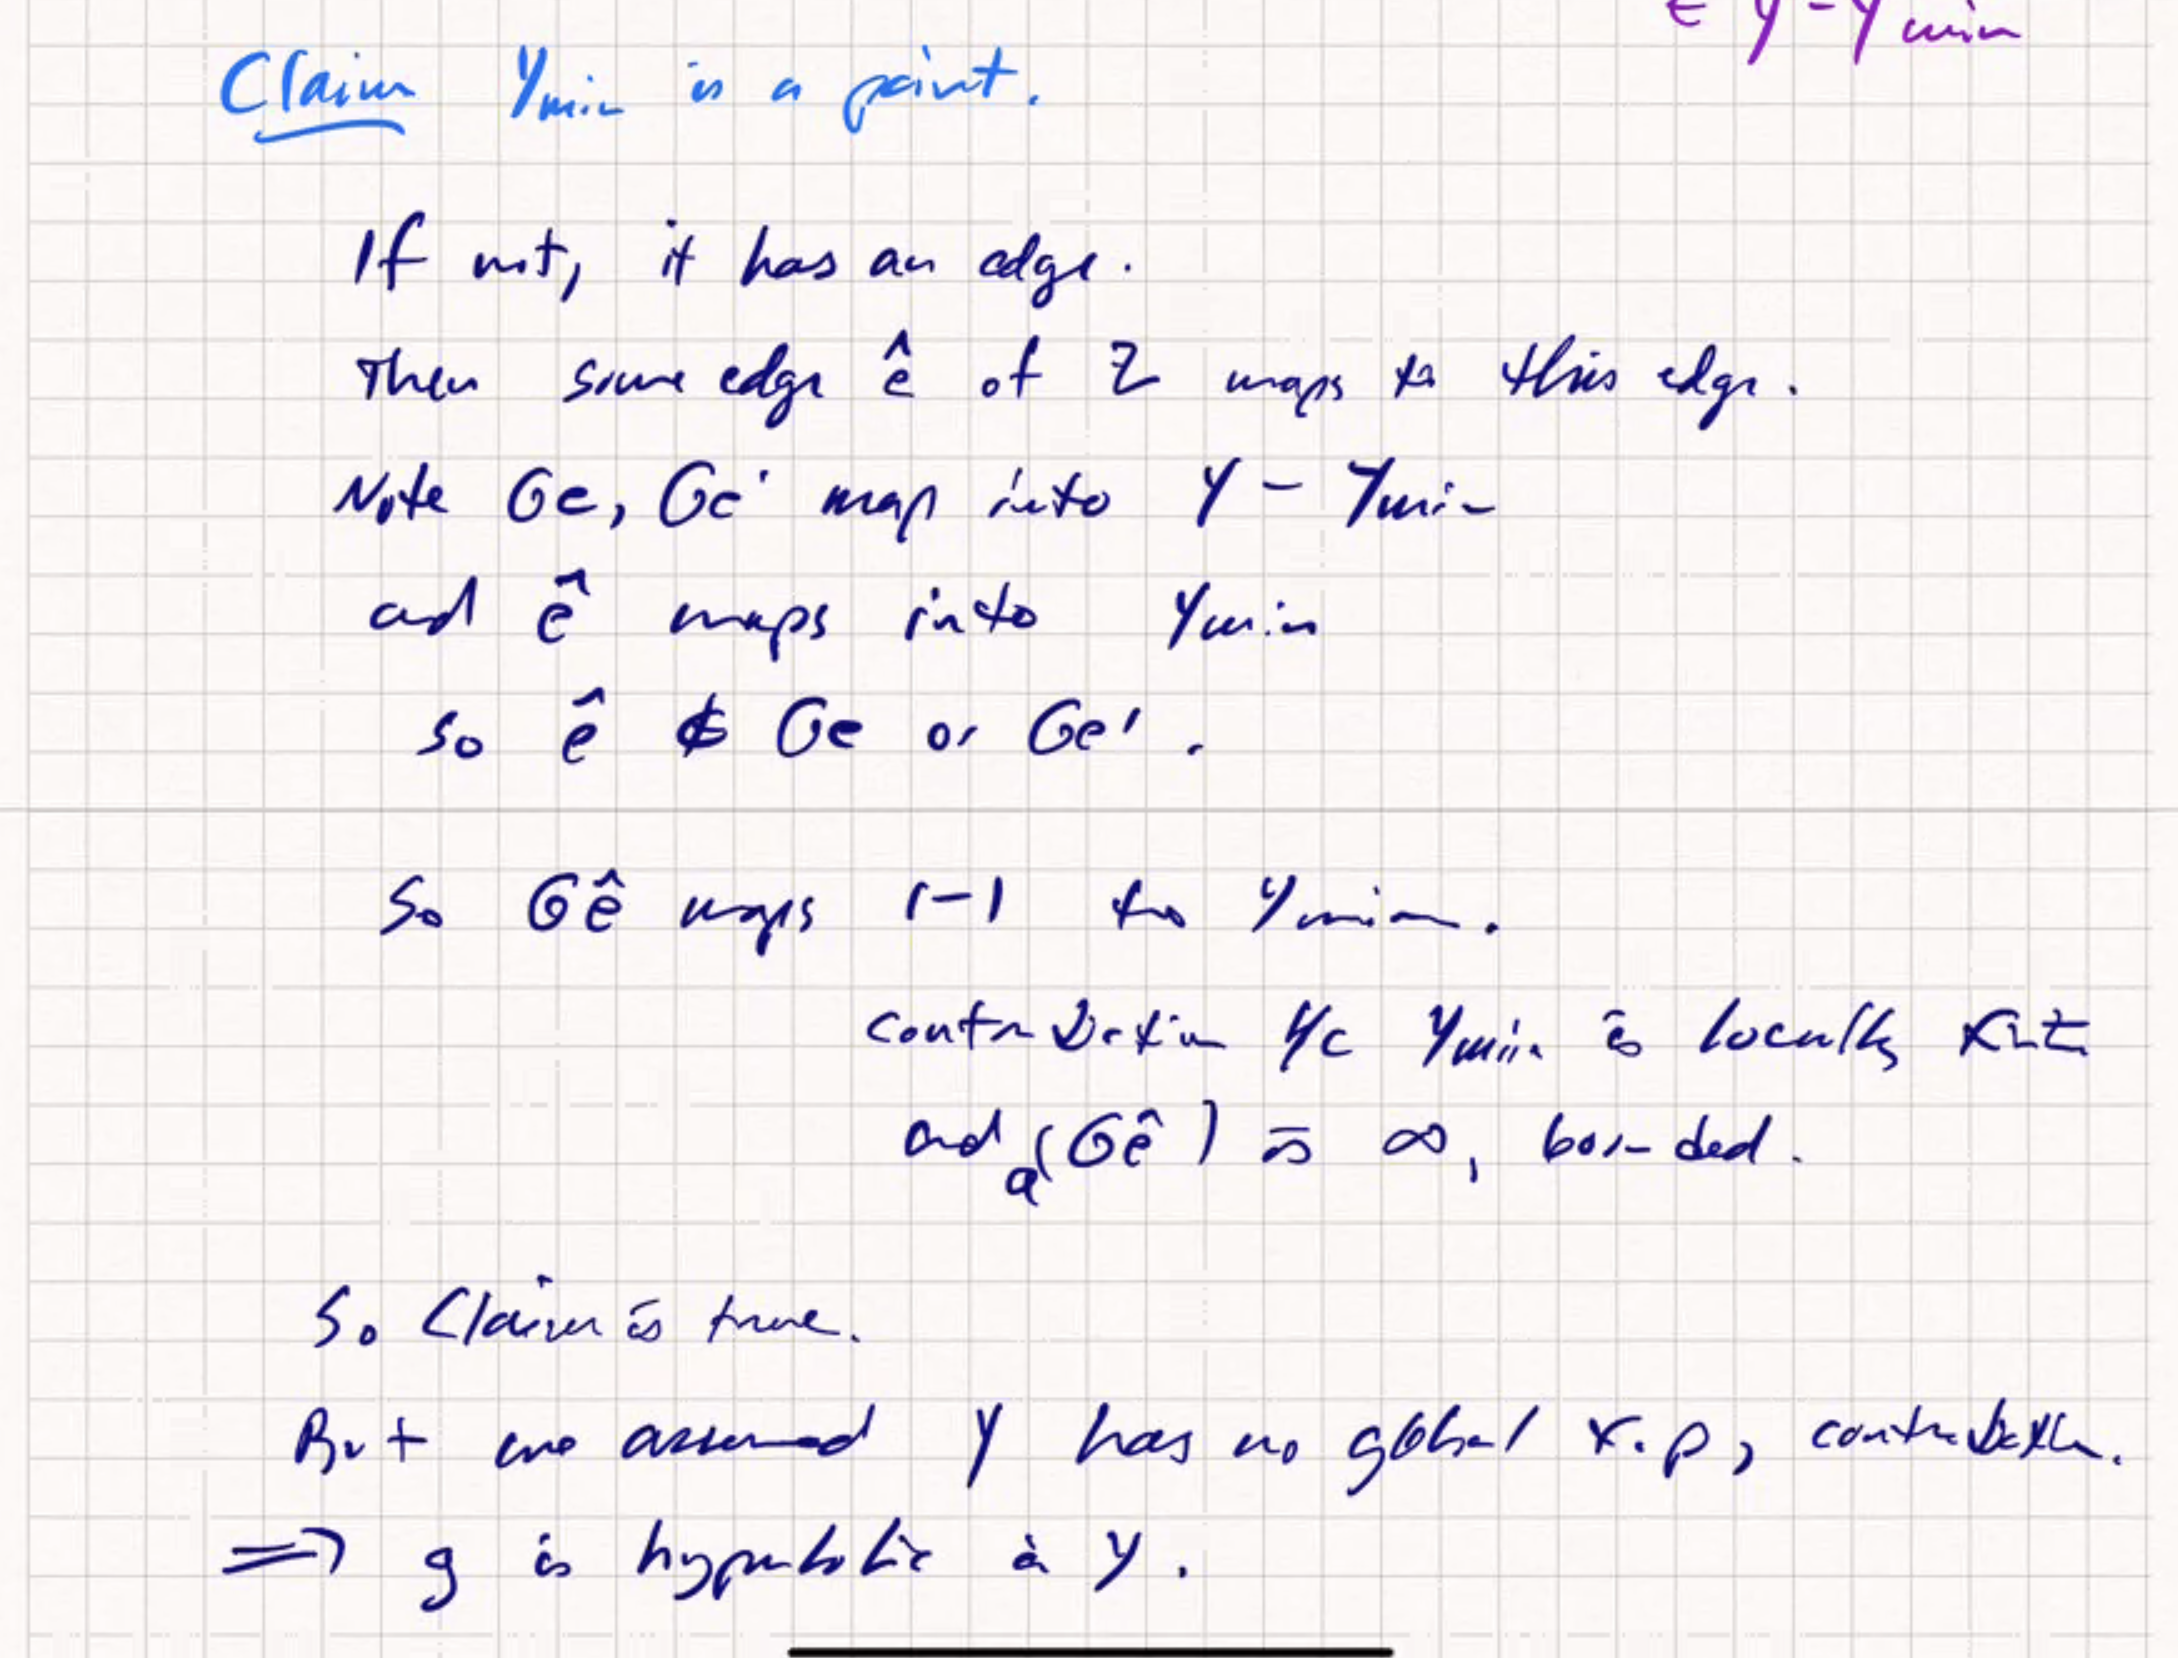 ∈ Y - Ymin
Claim Ymin is a point.
If not, it has an edge.
Then some edge ê of Z maps to this edge.
Note Ge, Ge' map into Y - Ymin
and ê maps into Ymin
so ê ∉ Ge or Ge'.
So Gê maps 1-1 to Ymin.
contradiction b/c Ymin is locally finite
and q(Gê) is ∞, bounded.
So Claim is true.
But we assumed Y has no global f.p, contradiction.
⟹ g is hyperbolic in Y.